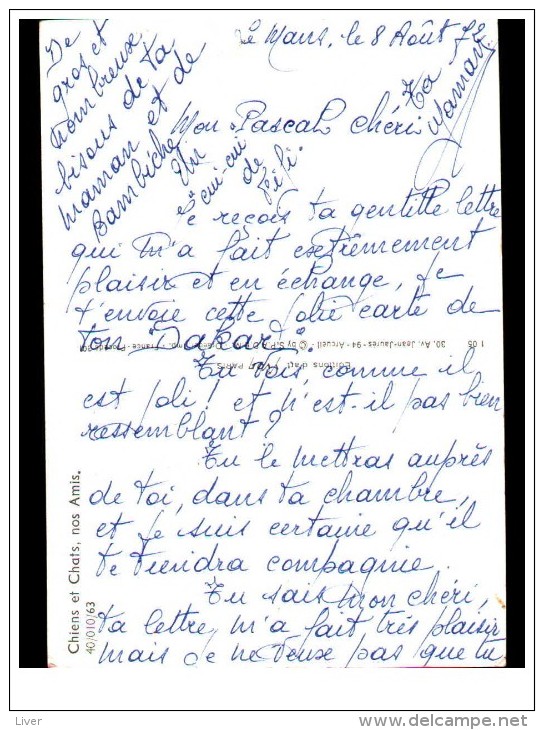 Le Mans, le 8 Août 72
Mon Pascal chéri
Je reçois ta gentille lettre
qui m'a fait extrêmement
plaisir et en échange, je
t'envoie cette jolie carte de
ton "Dakar".
Tu vois, comme il
est joli! et n'est-il pas bien
ressemblant?
Tu le mettras auprès
de toi, dans ta chambre,
et je suis certaine qu'il
te tiendra compagnie.
Tu sais mon chéri,
ta lettre, m'a fait très plaisir
mais je ne veux pas que tu
De
gros et
nombreux
bisous de ta
maman et de
Bambiche
Un
"cui-cui"
de
Fifi.
Ta
Maman
Chiens et Chats, nos Amis.
40/010/63
30, Av. Jean-Jaurès - 94 - Arcueil
Editions d'art
PARIS
Liver
www.delcampe.net